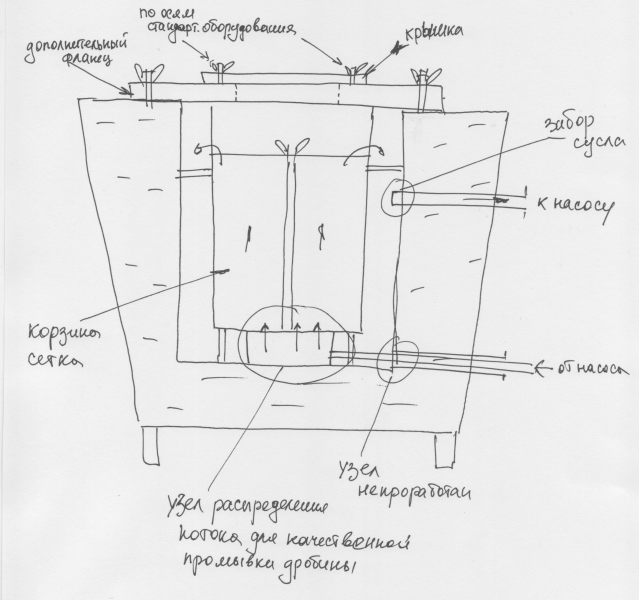 по осям
стандарт. оборудования
крышка
дополнительный
фланец
забор
сусла
к насосу
корзина
сетка
от насоса
узел
непроработан
узел распределения
потока для качественной
промывки дробины